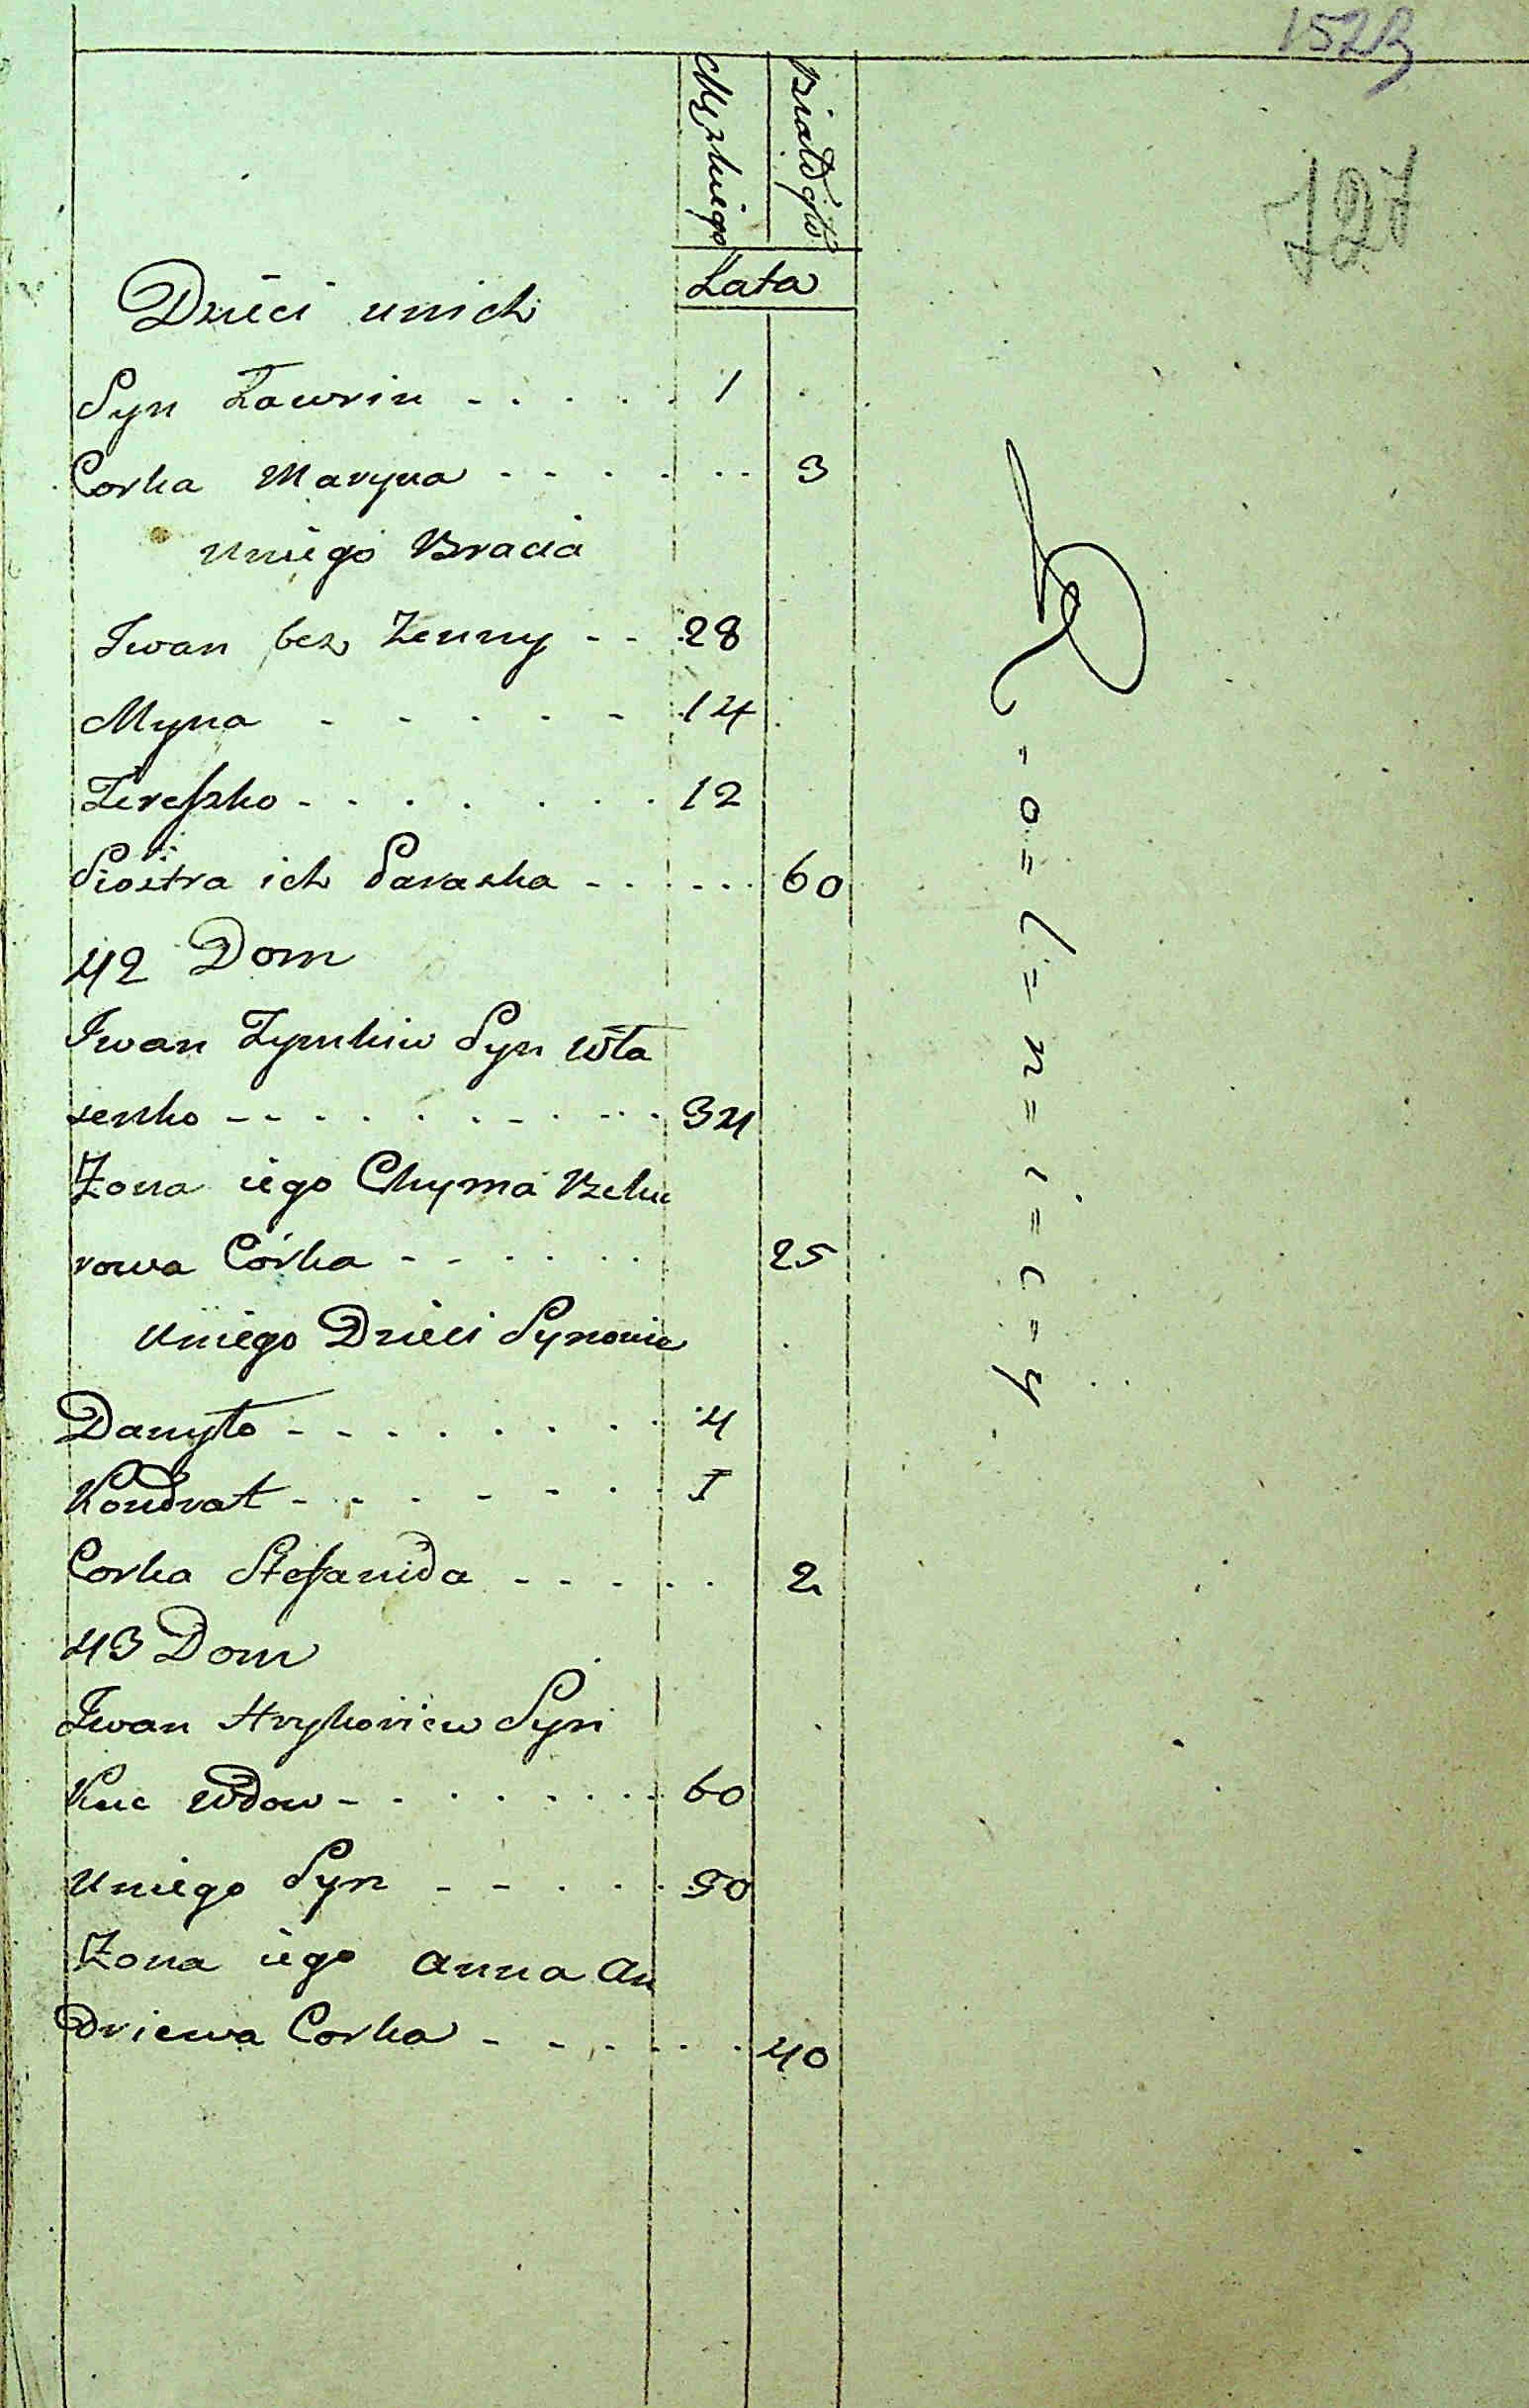 152B
727
Męzkiego Białogło
Lata
Dzieci unich
Syn Ławrin - - - - - 1
Corka Maryna - - - - - - 3
uniego Bracia
Iwan bez Zenny - - 28
Myna - - - - - 14
Tereszko - - - - - - - 12
Siostra ich Paraska - - - - - 60
42 Dom
Iwan Tymkiw Syn Wła
senko - - - - - - - - - 34
Żona iego Chyma
rowa Córka - - - - - - 25
uniego Dzieci Synowie
Danyło - - - - - - - - 4
Kondrat - - - - - - - 1
Corka Stefanida - - - - - 2
43 Dom
Iwan Hryhoriew Syn
Kuc Wdow - - - - - - - 60
uniego Syn - - - - - 50
Żona iego Anna An
driewa Corka - - - - - - 40
- o = l = n = i = c - y